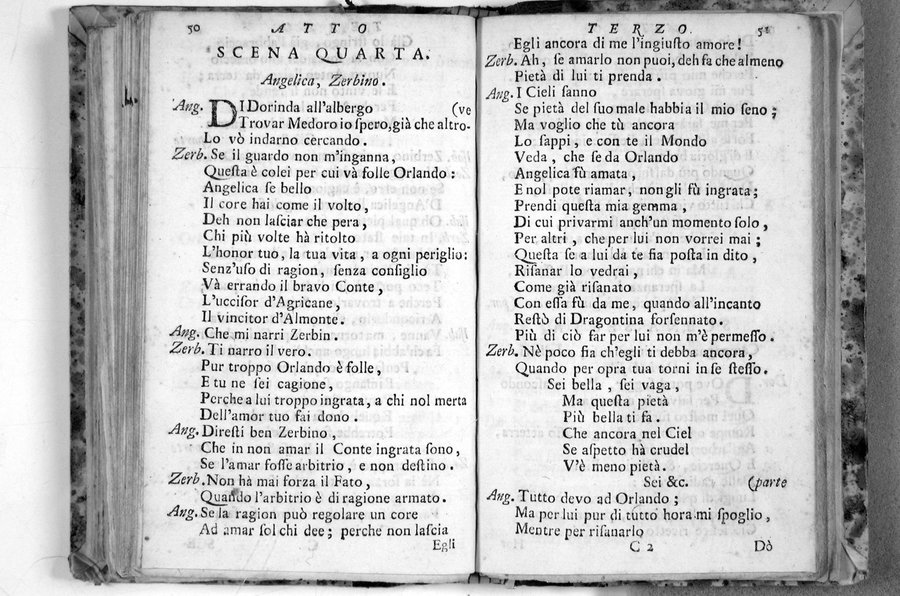 50 ATTO
SCENA QUARTA.
Angelica, Zerbino.
Ang. DI Dorinda all'albergo (ve
Trovar Medoro io spero, già che altro-
Lo vò indarno cercando.
Zerb. Se il guardo non m'inganna,
Queſta è colei per cui và folle Orlando:
Angelica ſe bello
Il core hai come il volto,
Deh non laſciar che pera,
Chi più volte hà ritolto
L'honor tuo, la tua vita, a ogni periglio:
Senz'uſo di ragion, ſenza conſiglio
Và errando il bravo Conte,
L'ucciſor d'Agricane,
Il vincitor d'Almonte.
Ang. Che mi narri Zerbin.
Zerb. Ti narro il vero.
Pur troppo Orlando è folle,
E tu ne ſei cagione,
Perche a lui troppo ingrata, a chi nol merta
Dell'amor tuo fai dono.
Ang. Direſti ben Zerbino,
Che in non amar il Conte ingrata ſono,
Se l'amar foſſe arbitrio, e non deſtino.
Zerb. Non hà mai forza il Fato,
Quando l'arbitrio è di ragione armato.
Ang. Se la ragion può regolare un core
Ad amar ſol chi dee; perche non laſcia
Egli
TERZO. 51
Egli ancora di me l'ingiuſto amore!
Zerb. Ah, ſe amarlo non puoi, deh fa che almeno
Pietà di lui ti prenda.
Ang. I Cieli ſanno
Se pietà del ſuo male habbia il mio ſeno;
Ma voglio che tù ancora
Lo ſappi, e con te il Mondo
Veda, che ſe da Orlando
Angelica fù amata,
E nol pote riamar, non gli fù ingrata;
Prendi queſta mia gemma,
Di cui privarmi anch'un momento ſolo,
Per altri, che per lui non vorrei mai;
Queſta ſe a lui da te ſia poſta in dito,
Riſanar lo vedrai,
Come già riſanato
Con eſſa fù da me, quando all'incanto
Reſtò di Dragontina forſennato.
Più di ciò far per lui non m'è permeſſo.
Zerb. Nè poco fia ch'egli ti debba ancora,
Quando per opra tua torni in ſe ſteſſo.
Sei bella, ſei vaga,
Ma queſta pietà
Più bella ti fa.
Che ancora nel Ciel
Se aſpetto hà crudel
V'è meno pietà.
Sei &c. (parte
Ang. Tutto devo ad Orlando;
Ma per lui pur di tutto hora mi ſpoglio,
Mentre per riſanarlo
C 2 Dò